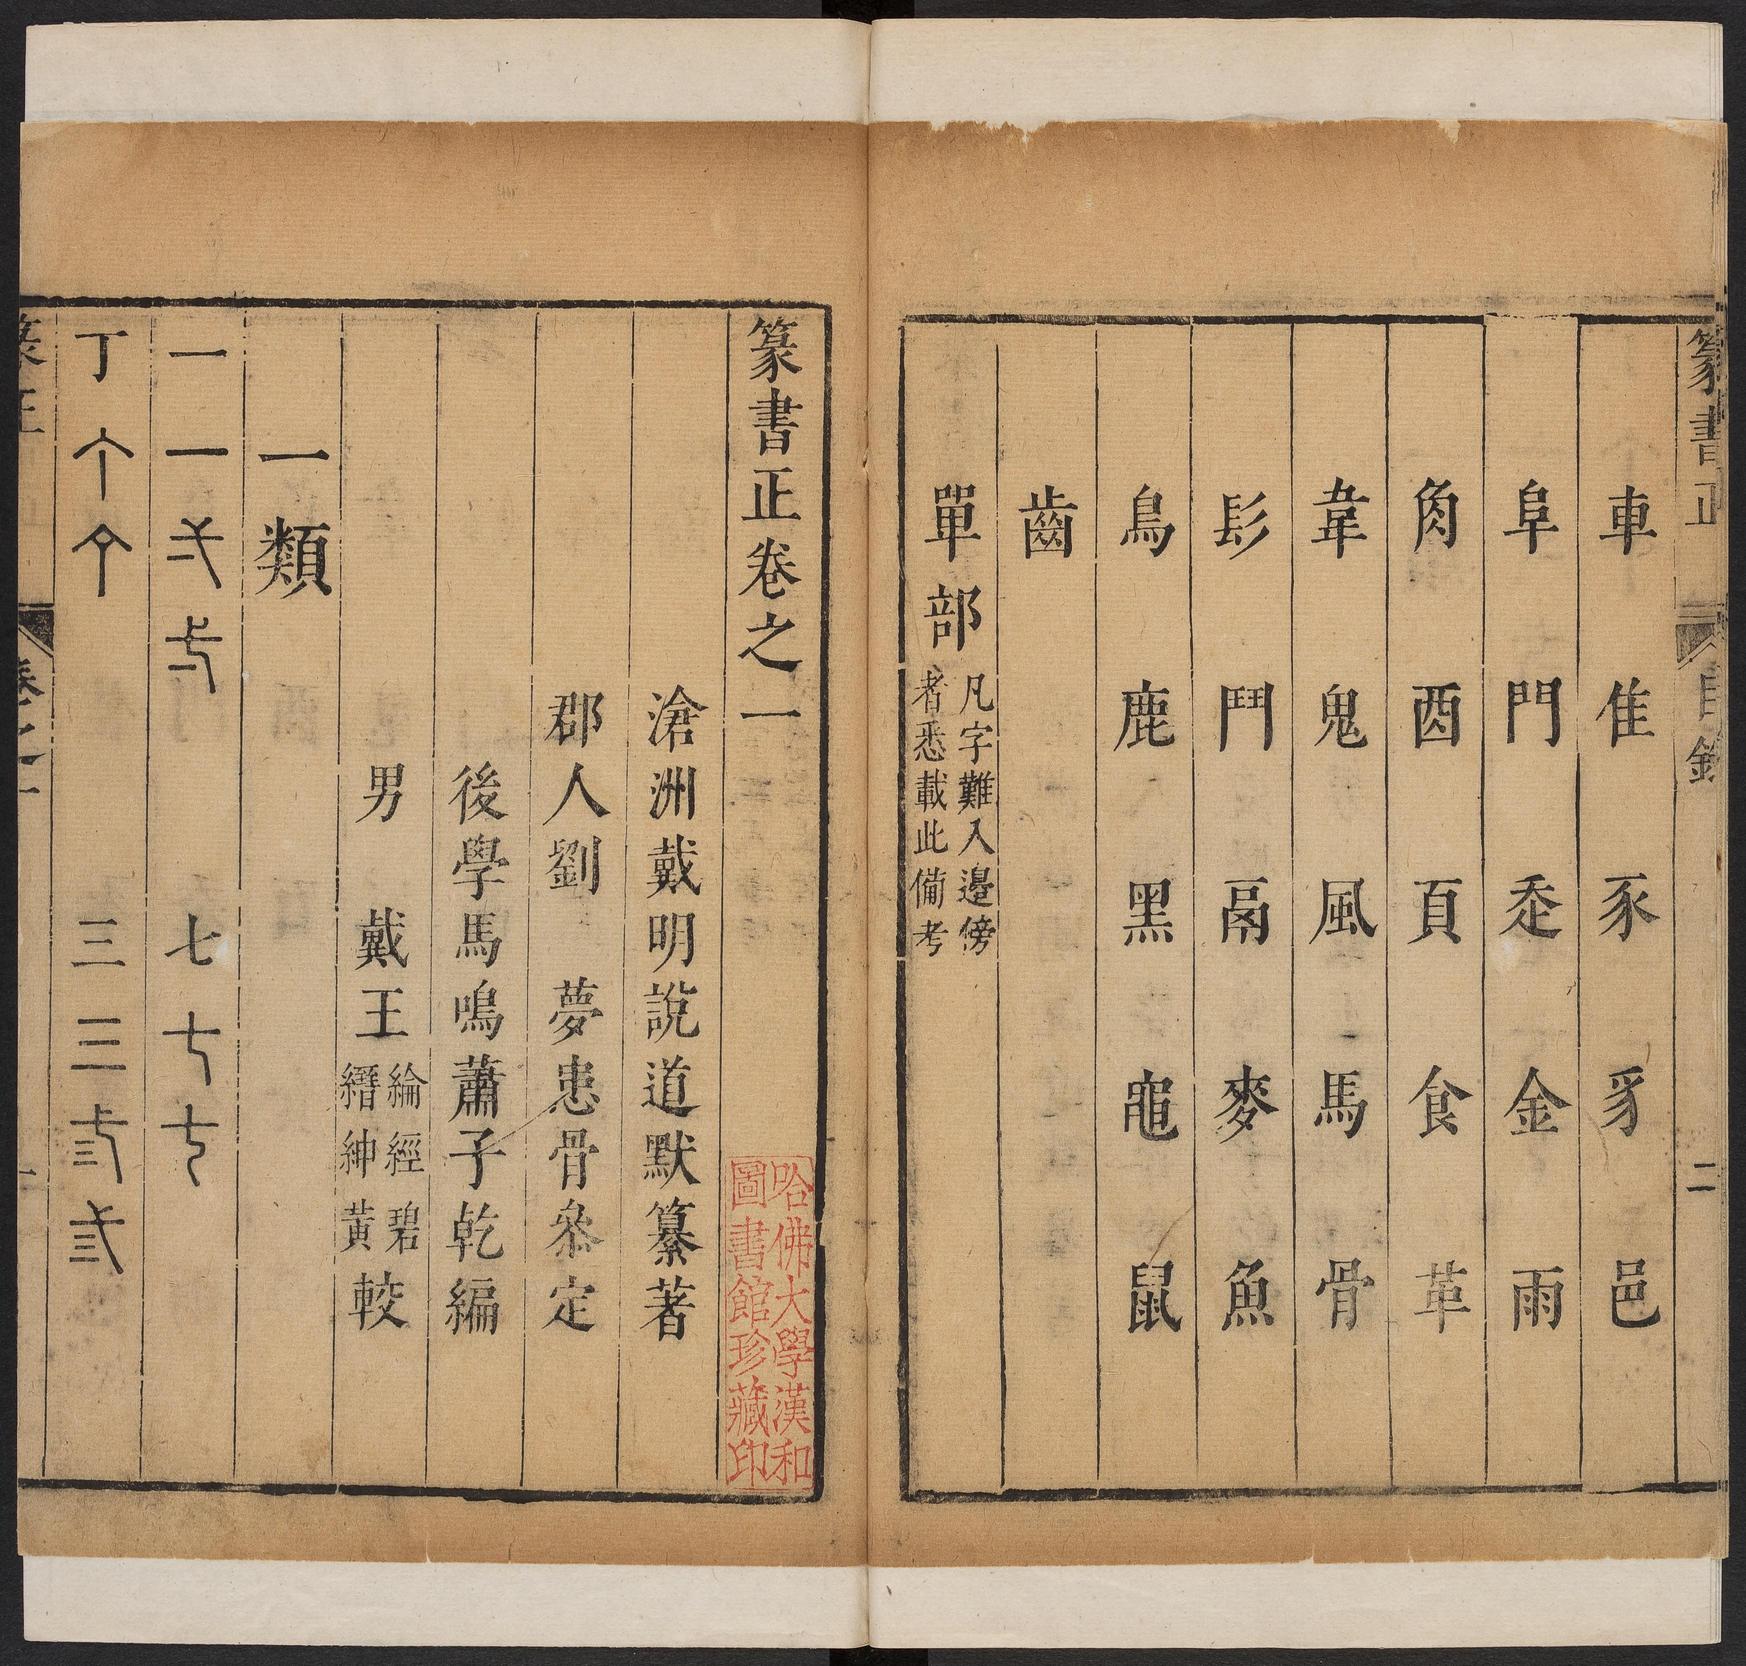 篆書正
目錄
二
車 隹 豕 豸 邑
阜 門 金 雨
角 酉 頁 食 革
韋 鬼 風 馬 骨
髟 鬥 鬲 麥 魚
鳥 鹿 黑 黽 鼠
齒
單部 凡字難入邊傍
者悉載此備考
篆書正卷之一
滄洲戴明說道默纂著
郡人劉 夢患骨叅定
後學馬鳴蕭子乾編
男 戴王綸經碧
縉紳黃較
一類
一 一 弌 七 七 七
丁 个 三 三 弎
哈佛大學漢和
圖書館珍藏印